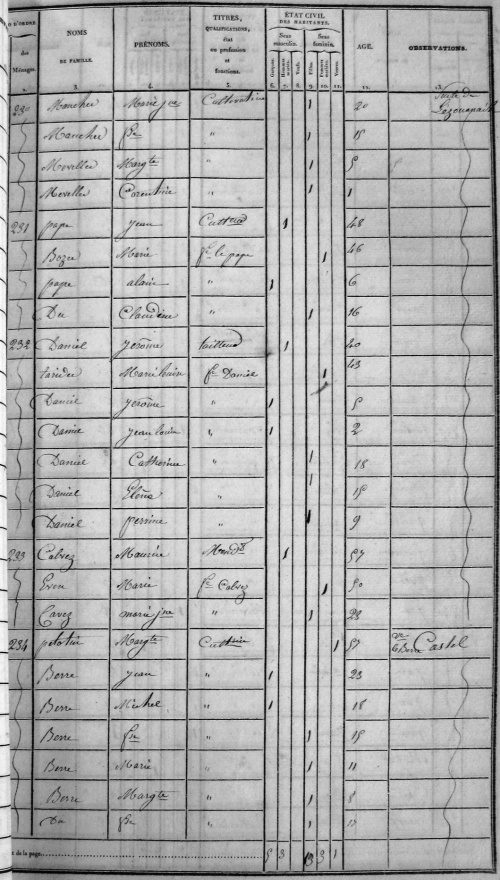 NOS D'ORDRE des Ménages. NOMS DE FAMILLE. PRÉNOMS. TITRES, QUALIFICATIONS, état ou profession et fonctions. ÉTAT CIVIL DES HABITANTS. Sexe masculin. Sexe féminin. AGE. OBSERVATIONS.
Garçons. Hommes mariés. Veufs. Filles. Femmes mariées. Veuves.
2. 3. 4. 5. 6. 7. 8. 9. 10. 11. 12. 13.
230 Manchec Marie jne Cultivatrice 1 20 Suite de
Manchec fse " 1 15
Mevellec Margte " 1 5
Mevellec Corentine " 1 1
231 pape jean Cultteur 1 48
Bozec Marie fe le pape 1 46
pape alain " 1 6
Du Claudine " 1 16
232 Daniel jerôme tailleur 1 40
Marie louise fe Daniel 1 43
Daniel jerôme " 1 5
Daniel jean louis " 1 2
Daniel Catherine " 1 18
Daniel " 1 15
Daniel perrine " 1 9
233 Cabrez Maurice Mendt 1 57
Even Marie fe Cabrez 1 50
Cavez marie jne " 1 23
234 Margte 1 57 Ve Castel
Berre jean " 1 23
Berre Michel " 1 18
Berre fse " 1 15
Berre Marie " 1 11
Berre Margte " 1 8
Du fse " 1
de la page 5 3 13 3 1